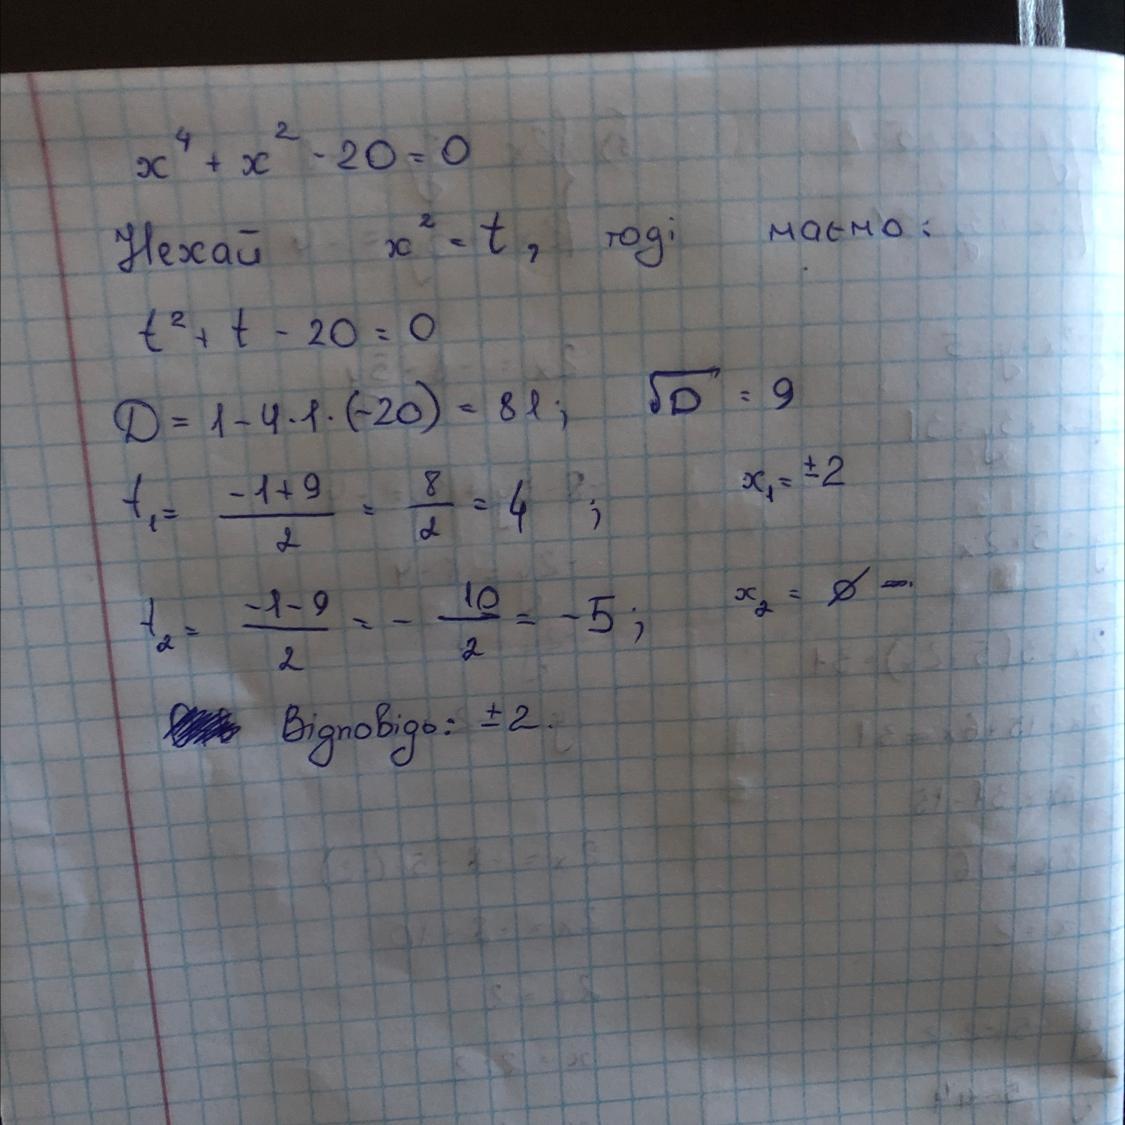 x⁴ + x² - 20 = 0
Нехай x² = t, тоді маємо:
t² + t - 20 = 0
D = 1 - 4 · 1 · (-20) = 81; √D = 9
t₁ = (-1+9)/2 = 8/2 = 4 ; x₁ = ±2
t₂ = (-1-9)/2 = - 10/2 = -5 ; x₂ = ∅
Відповідь: ±2.